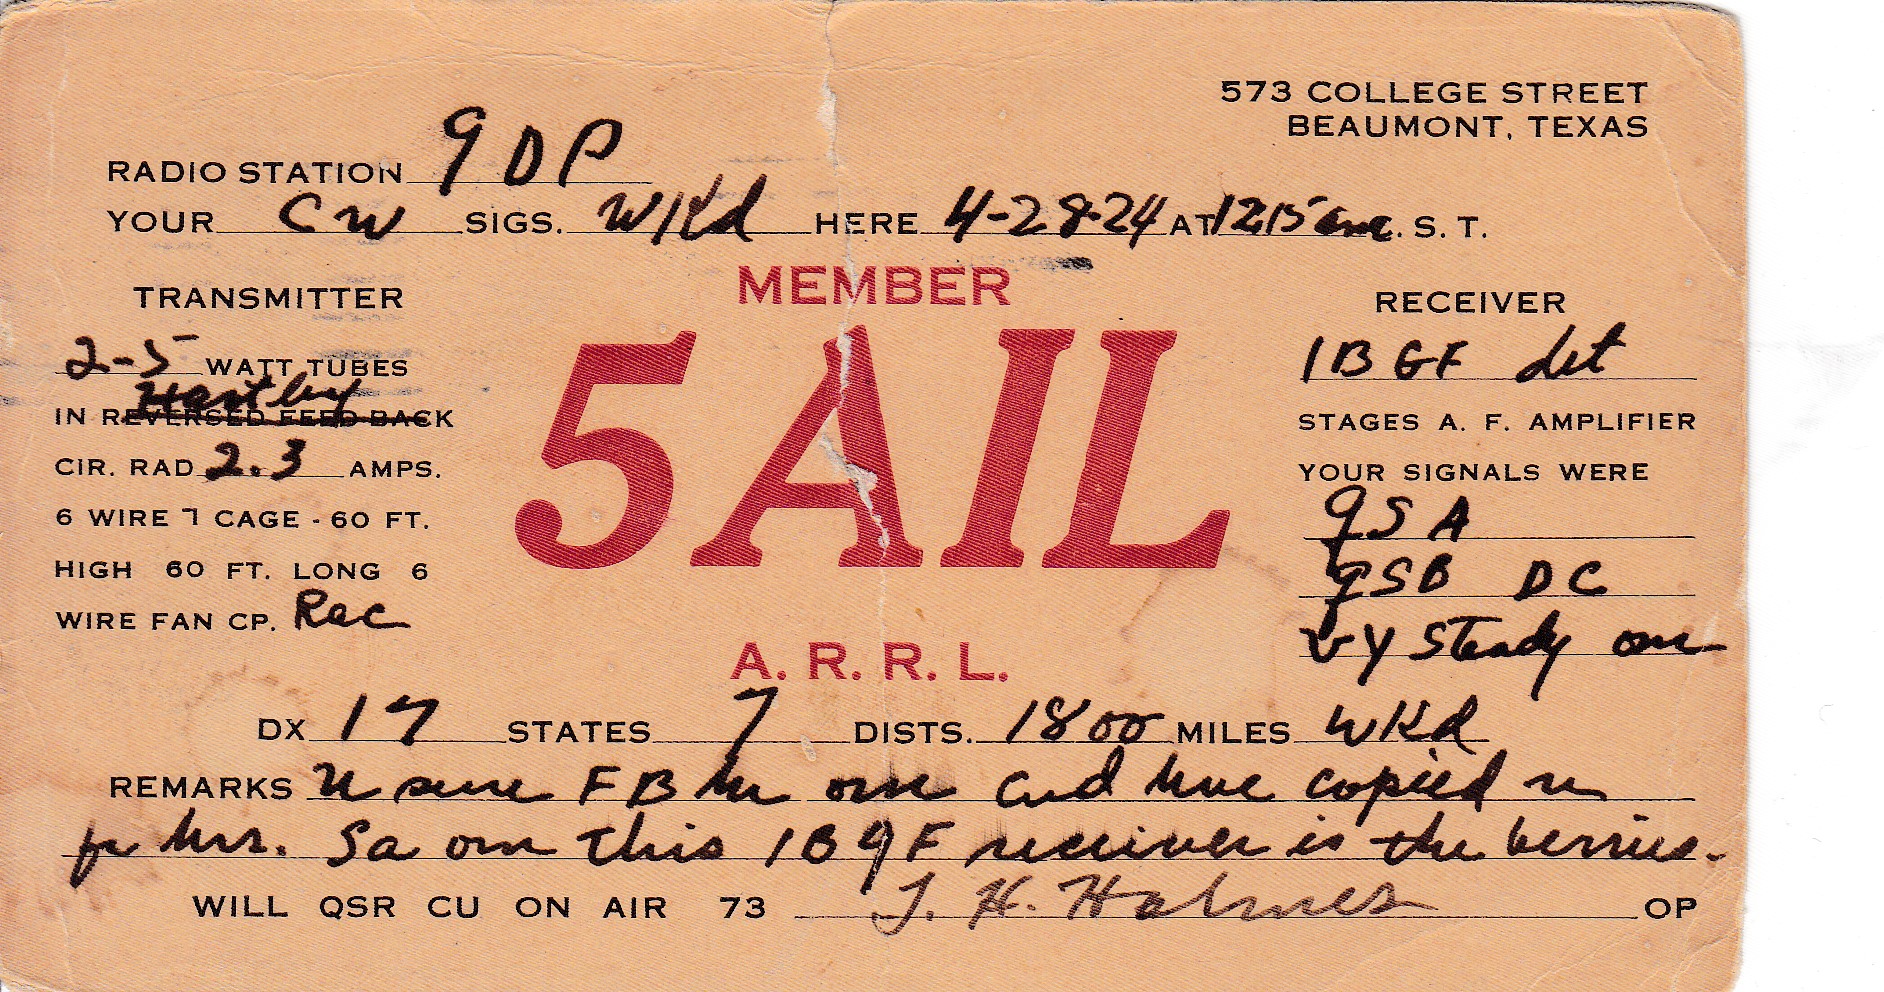 573 COLLEGE STREET
BEAUMONT, TEXAS
RADIO STATION 9DP
YOUR CW SIGS. WKd HERE 4-28-24 AT 12 15 am C. S. T.
MEMBER
TRANSMITTER
RECEIVER
2-5 WATT TUBES
IN Hartley REVERSED FEED BACK
CIR. RAD 2.3 AMPS.
6 WIRE 7 CAGE - 60 FT.
HIGH 60 FT. LONG 6
WIRE FAN CP. Rec
5AIL
1BGF det
STAGES A. F. AMPLIFIER
YOUR SIGNALS WERE
QSA
QSB DC
vy steady om
A. R. R. L.
DX 17 STATES 7 DISTS. 1800 MILES WKd
REMARKS U sure FB hr om cud hve copied u
fr hrs. Sa om this 1BGF receiver is the berries.
WILL QSR CU ON AIR 73 J. H. Holmes OP